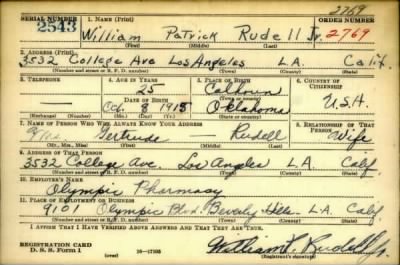 2769
SERIAL NUMBER 1. NAME (Print) ORDER NUMBER
2543 William Patrick Rudell Jr. 2769
(First) (Middle) (Last)
2. ADDRESS (Print)
3532 College Ave Los Angeles L.A. Calif.
(Number and street or R. F. D. number) (Town) (County) (State)
3. TELEPHONE 4. AGE IN YEARS 5. PLACE OF BIRTH 6. COUNTRY OF CITIZENSHIP
25 Calhoun
DATE OF BIRTH (Town or county)
Oct. 8 1915 Oklahoma U.S.A.
(Exchange) (Number) (Mo.) (Day) (Yr.) (State or country)
7. NAME OF PERSON WHO WILL ALWAYS KNOW YOUR ADDRESS 8. RELATIONSHIP OF THAT PERSON
Mrs Gertrude — Rudell Wife
(Mr., Mrs., Miss) (First) (Middle) (Last)
9. ADDRESS OF THAT PERSON
3532 College Ave Los Angeles L.A. Calif.
(Number and street or R. F. D. number) (Town) (County) (State)
10. EMPLOYER'S NAME
Olympic Pharmacy
11. PLACE OF EMPLOYMENT OR BUSINESS
9101 Olympic Blvd. Beverly Hills L.A. Calif.
(Number and street or R. F. D. number) (Town) (County) (State)
I AFFIRM THAT I HAVE VERIFIED ABOVE ANSWERS AND THAT THEY ARE TRUE.
REGISTRATION CARD
D. S. S. Form 1 (over) 16—17105 William P. Rudell Jr.
(Registrant's signature)